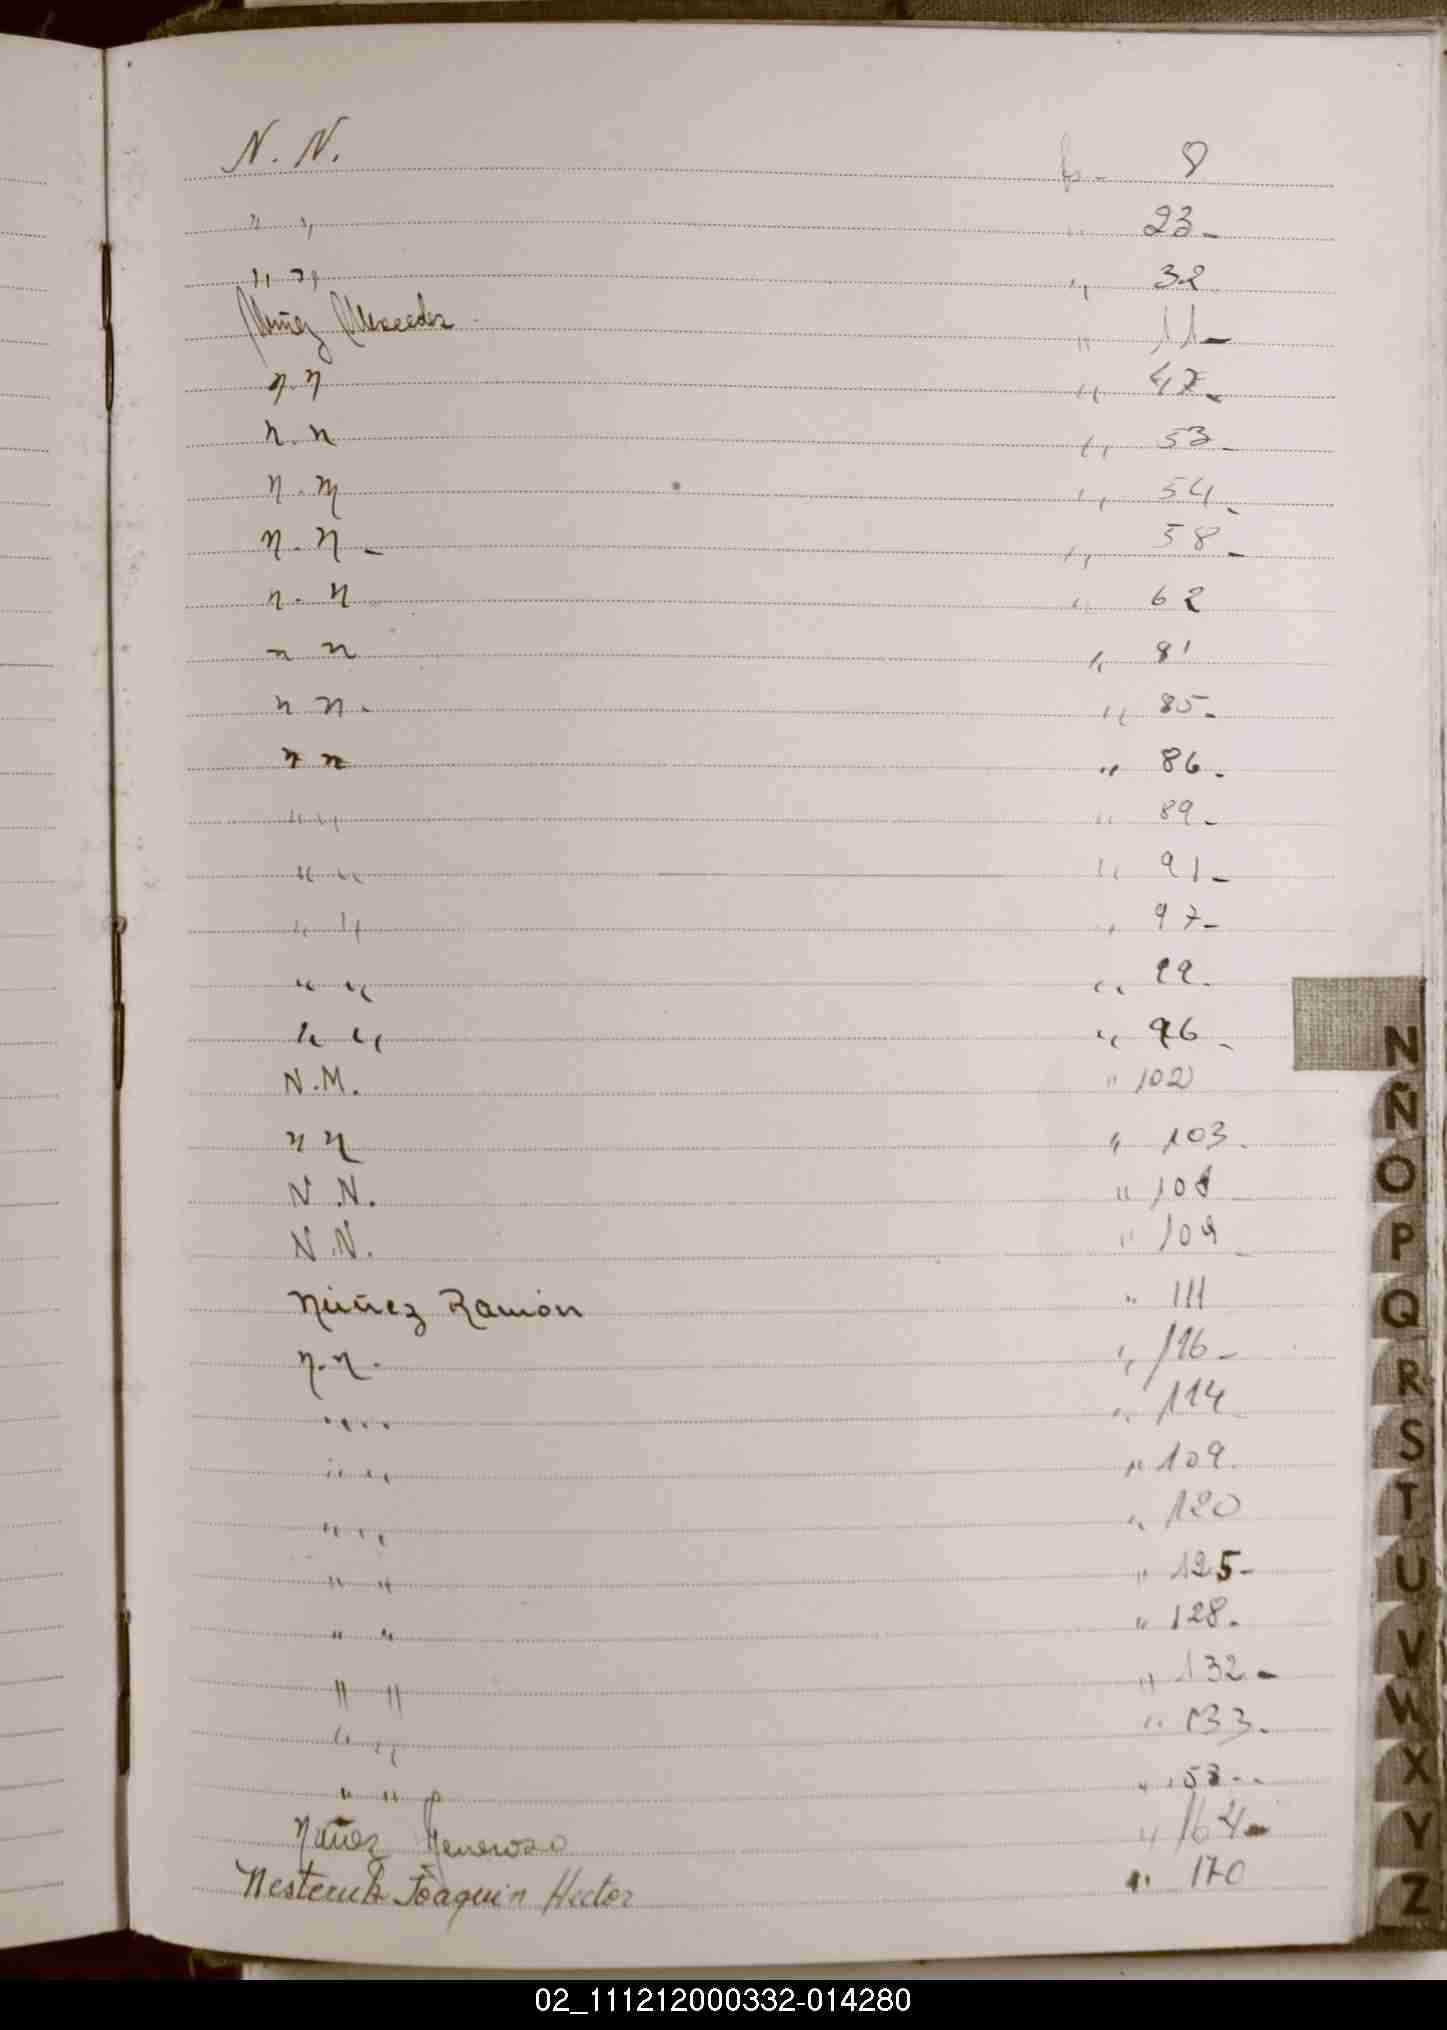 N. N. fo - 8
" " " 23-
" " " 32
Nuñez Mercedes - " 11-
N. N " 47-
N. N " 53-
N. N " 54-
N. N - " 58-
N. N " 62
N N " 81
N N - " 85-
N N " 86-
" " " 89-
" " " 91-
" " " 97-
" " "
" " " 96-
N.M. " 102
N N " 103-
N N. " 108
N.N. " 109
Núñez Ramón " 111
N.N. " 116-
" " " 114
" " " 109.
" " " 120
" " " 125-
" " " 128.
" " " 132-
" " " 133.
" " "
Nuñez Generoso " 164-
Nesteruk Joaquin Hector " 170
N
Ñ
O
P
Q
R
S
T
U
V
W
X
Y
Z
02_111212000332-014280